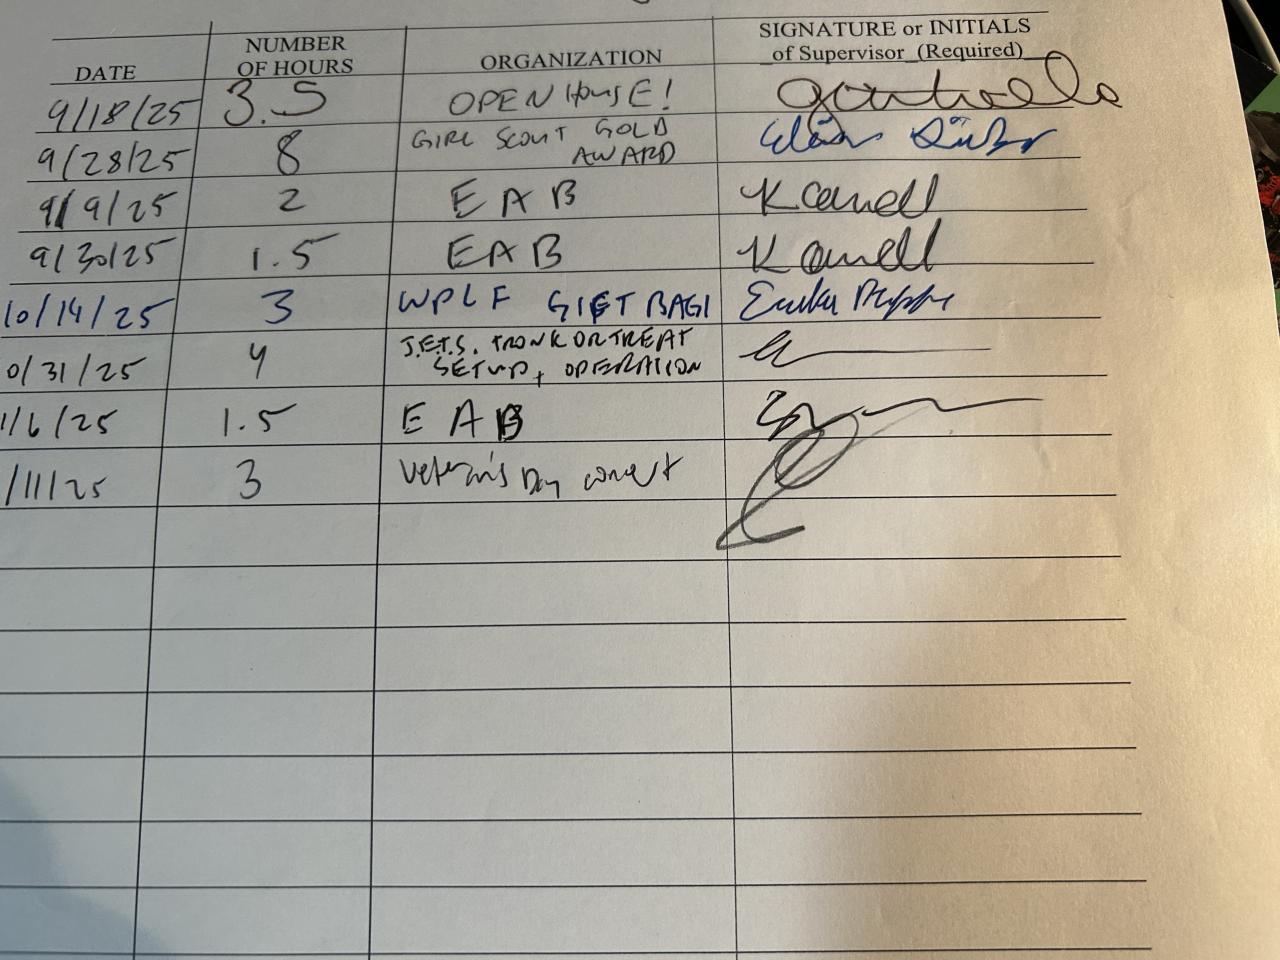 DATE NUMBER OF HOURS ORGANIZATION SIGNATURE or INITIALS of Supervisor (Required)
9/18/25 3.5 OPEN HOUSE!
9/28/25 8 GIRL SCOUT GOLD
AWARD
9/9/25 2 EAB K
9/30/25 1.5 EAB K
10/14/25 3 WPLF GIFT BAGI Erika
0/31/25 4 J.E.T.S. TRONK OR TREAT
SETUP + OPERATION
1/6/25 1.5 EAB
/11/25 3 Veteran's Day concert